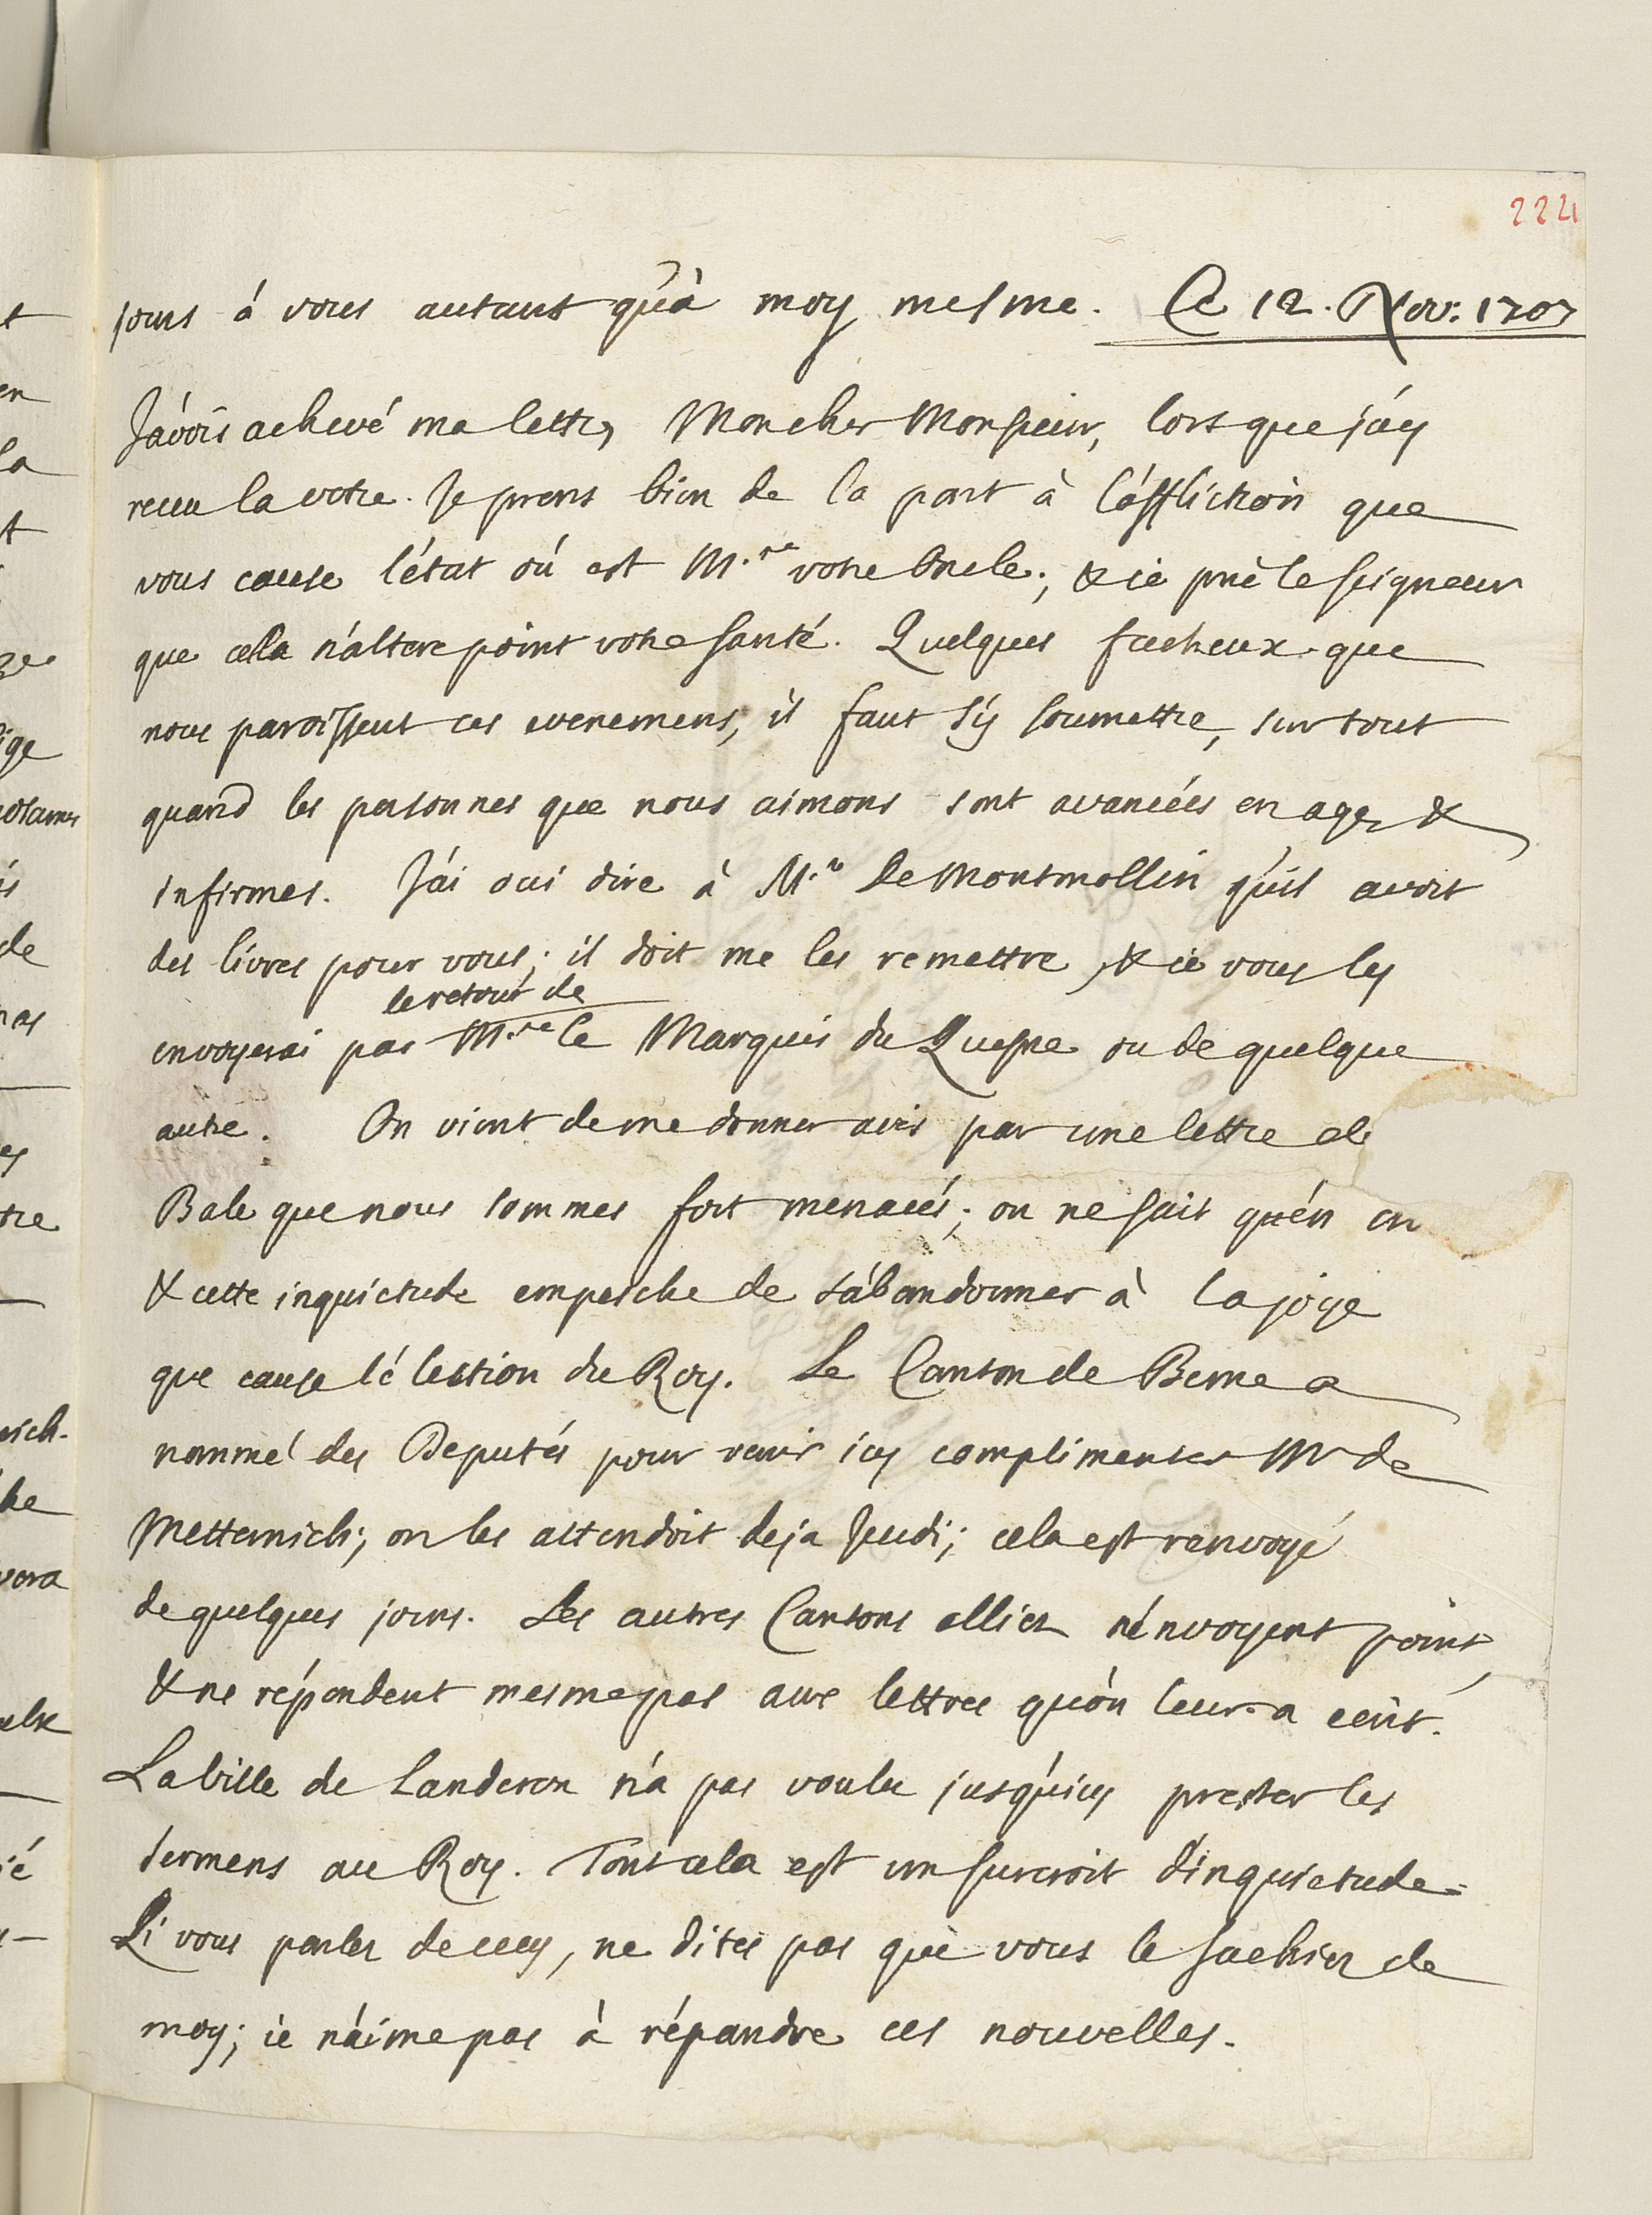 224
jours à vous autant qu'à moy mesme. Ce 12. Nov: 1707
J'avois achevé ma lettre, Mon cher Monsieur, lors que j'ay
receu la votre. Je prens bien de la part à l'affliction que
vous cause l'état où est M.re votre Oncle; & ie prie le Seigneur
que cela n'altere point votre santé. Quelques facheux que
nous paroissent ces evenemens, il faut s'y soumettre, sur tout
quand les personnes que nous aimons sont avancées en age, &
infirmes. J'ai oui dire à M.r de Montmollin qu'il avoit
des livres pour vous; il doit me les remettre, & ie vous les
le retour de
envoyerai par M.re le Marquis du Quesne ou de quelque
autre. On vient de me donner avis par une lettre de
Bale que nous sommes fort menacés; on ne sait qu'en
& cette inquietude empesche de s'abandonner à la joye
que cause l'élection du Roy. Le Canton de Berne a
nommé des Deputés pour venir icy complimenter Mr de
Metternich; on les attendoit deja Jeudi; cela est renvoyé
de quelques jours. Les autres Cantons alliez n'envoyent point,
& ne répondent mesme pas aux lettres qu'on leur a ecrit.
La ville de Landeron n'a pas voulu jusqu'icy prester les
sermens au Roy. Tout cela est un surcroit d'inquietude.
Si vous parlez de cecy, ne dites pas que vous le sachiez de
moy; ie n'aime pas à répandre ces nouvelles.